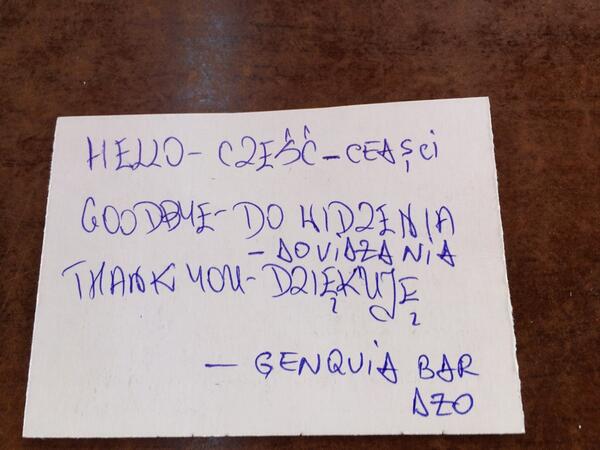 HELLO - CZEŚĆ - CEAȘCI
GOODBYE - DO WIDZENIA
- DOVIDZANIA
THANK YOU - DZIĘKUJĘ
- GENQUIA BAR
DZO